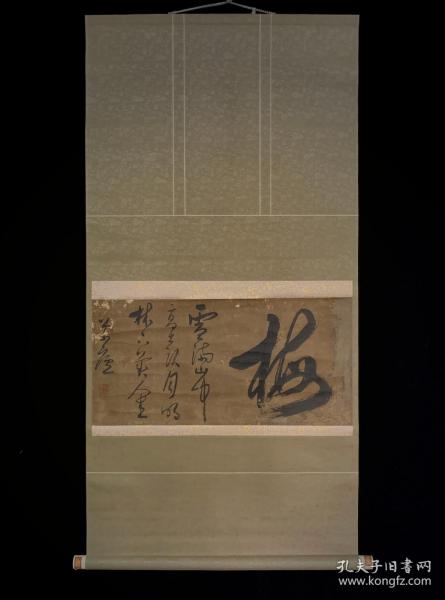 梅
雪滿山中
高士臥月明
林下美人來
孔夫子旧书网
www.kongfz.com